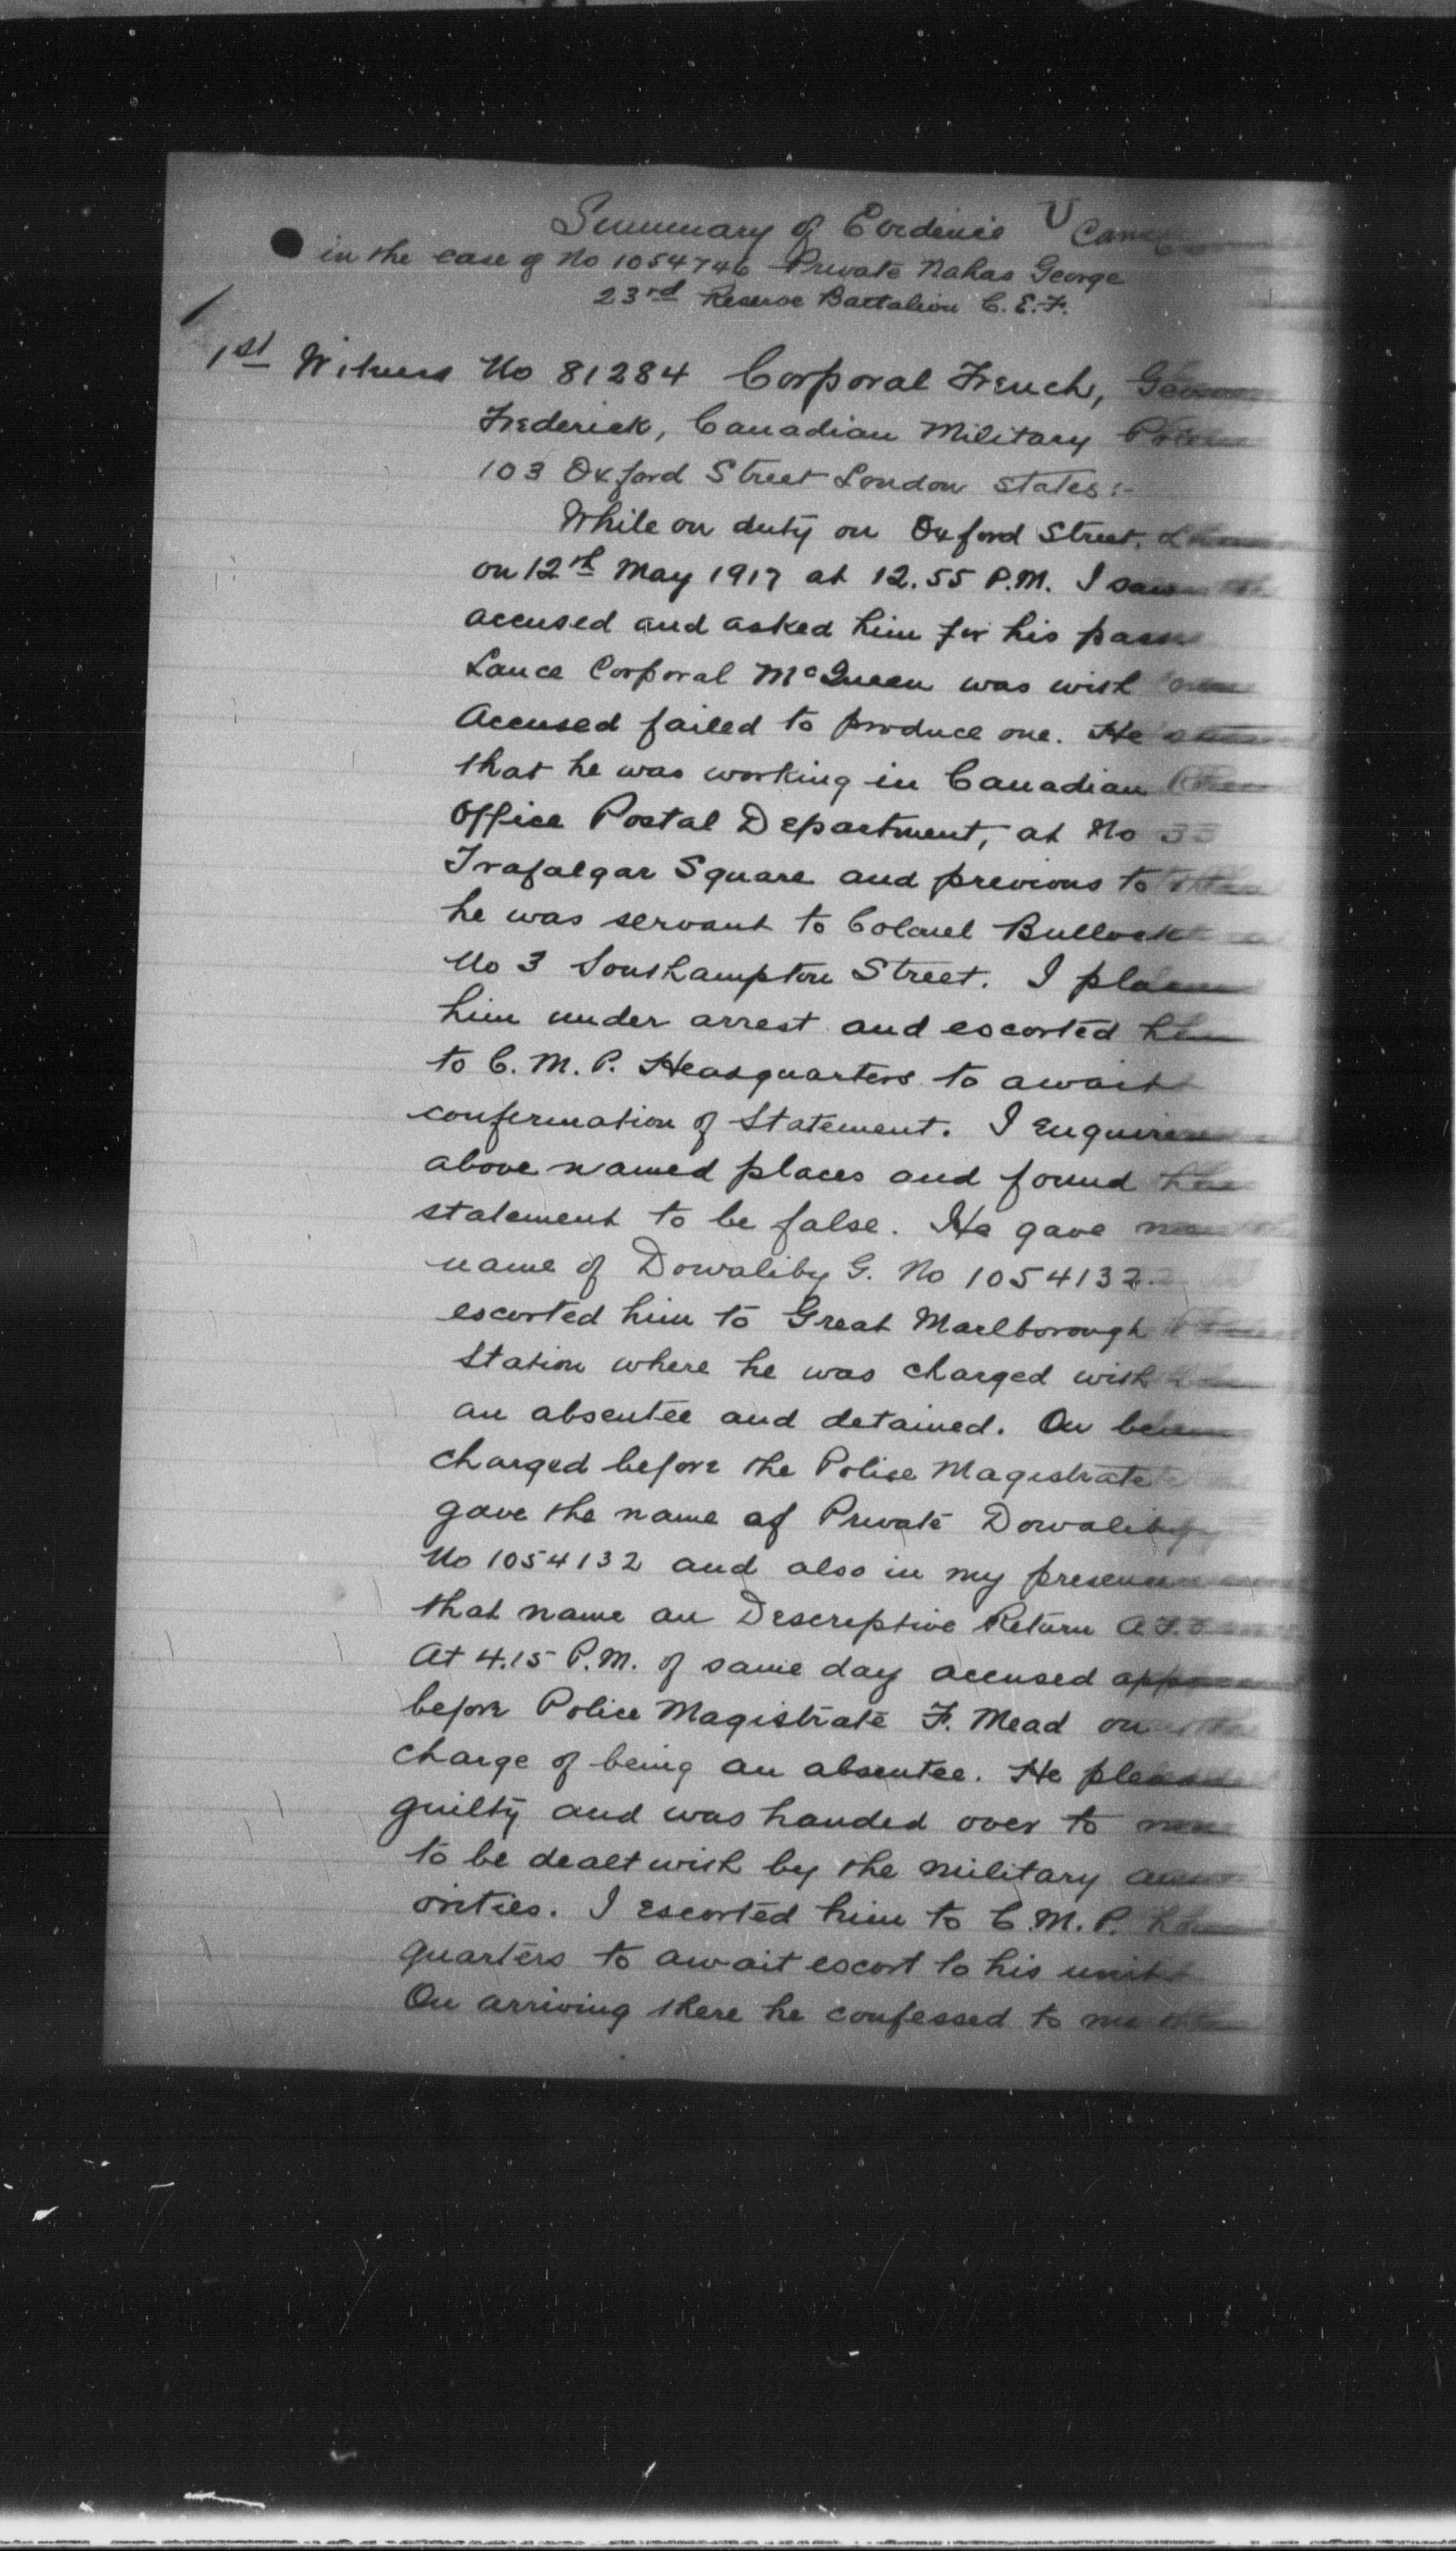 Summary of Evidence
in the case of No 1054746 Private Nahas George
23rd Reserve Battalion C.E.F.
1st Witness No 81284 Corporal French,
Frederick, Canadian Military
103 Oxford Street London states:-
While on duty on Oxford Street,
on 12th May 1917 at 12.55 P.M. I saw
accused and asked him for his pass
Lance Corporal McQueen was with
Accused failed to produce one. He
that he was working in Canadian
Office Postal Department, at No
Trafalgar Square and previous to
he was servant to Colonel Bullock
No 3 Southampton Street. I
him under arrest and escorted
to C.M.P. Headquarters to await
confirmation of Statement. I
above named places and found
statement to be false. He gave
name of Dowaliby G. No 1054132.
escorted him to Great Marlborough
Station where he was charged with
an absentee and detained. On
charged before the Police Magistrate
gave the name of Private Dowaliby
No 1054132 and also in my
that name on Descreptive Return A.F.
At 4.15 P.M. of same day accused
before Police Magistrate F. Mead on
charge of being an absentee. He
guilty and was handed over to
to be dealt with by the military
orities. I escorted him to C.M.P.
quarters to await escort to his unit
On arriving there he confessed to me